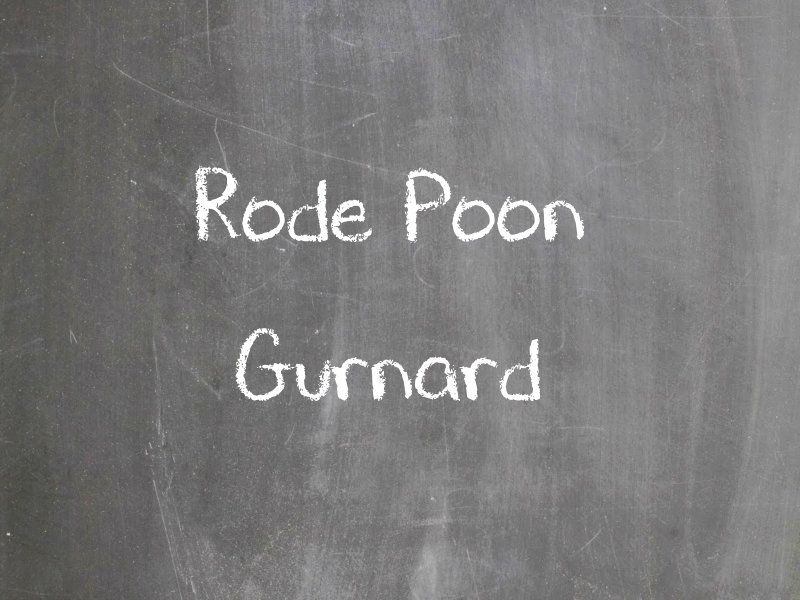 Rode Poon
Gurnard